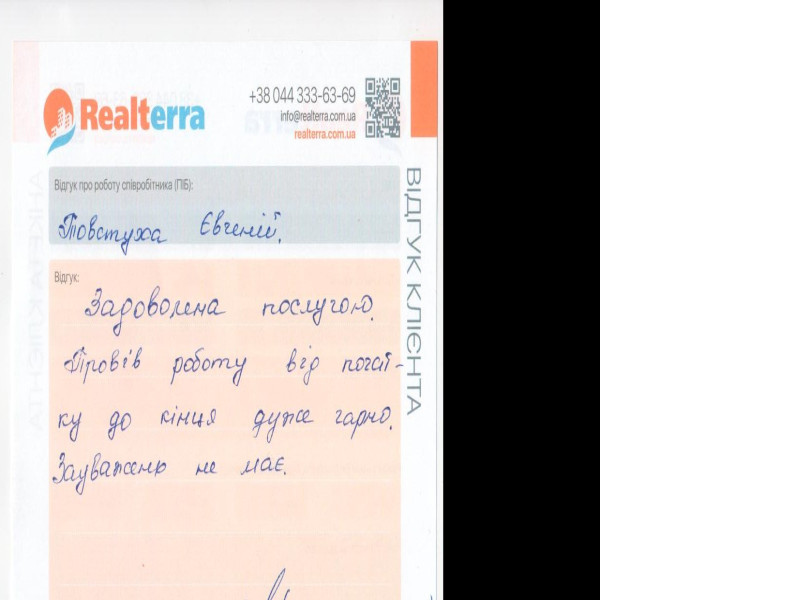 Realterra
+38 044 333-63-69
info@realterra.com.ua
realterra.com.ua
ВІДГУК КЛІЄНТА
Відгук про роботу співробітника (ПІБ):
Товстуха Євгеній.
Відгук:
Задоволена послугою.
Провів роботу від почат-
ку до кінця дуже гарно.
Зауважень не має.